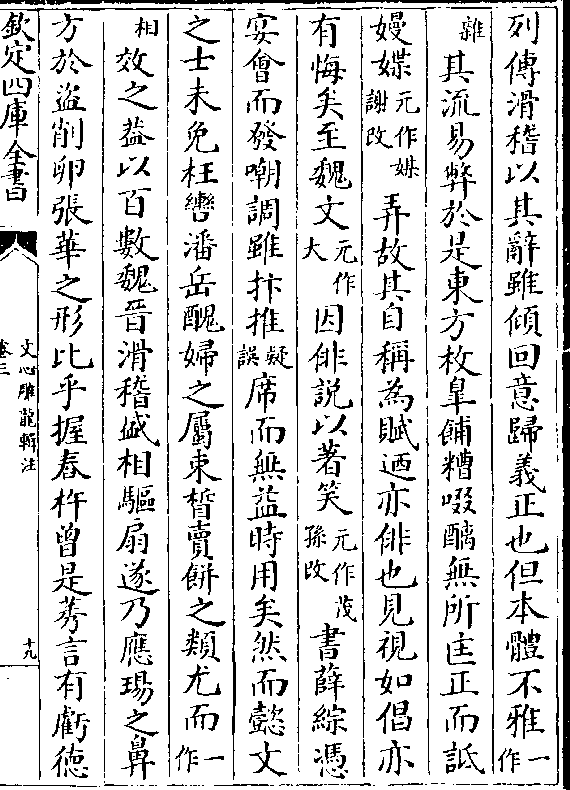 列傳滑稽以其辭雖傾回意歸義正也但本體不雅一作
雜其流易弊於是東方枚皐餔糟啜醨無所匡正而詆
嫚媟元作媒謝改弄故其自稱為賦迺亦俳也見視如倡亦
有悔矣至魏文元作大因俳說以著笑元作茂孫改書薛綜憑
宴會而發嘲調雖抃推疑誤席而無益時用矣然而懿文
之士未免枉轡潘岳醜婦之屬束晳賣餅之類尤而一作
相效之葢以百數魏晉滑稽盛相驅扇遂乃應瑒之鼻
方於盜削卵張華之形比乎握舂杵曾是莠言有虧徳
欽定四庫全書
文心雕龍輯注
卷三
十九